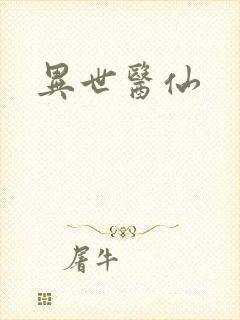 異世醫仙
屠牛